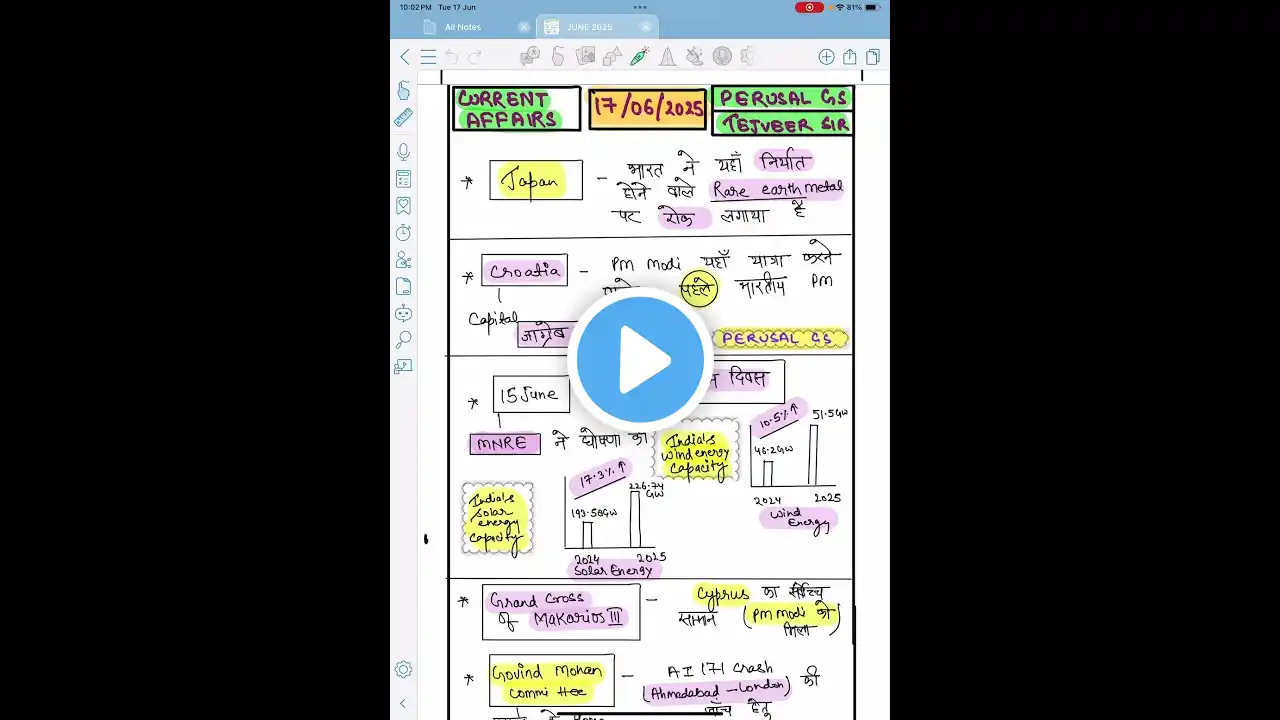 10:02 PM Tue 17 Jun
81%
All Notes
JUNE 2025
CURRENT
AFFAIRS
17/06/2025
PERUSAL GS
TEJVEER SIR
* Japan - भारत ने यहाँ निर्यात
होने वाले Rare earth metal
पर रोक लगाया है
* Croatia - PM Modi यहाँ यात्रा करने
पहले भारतीय PM
Capital
जाग्रेब
PERUSAL GS
* 15 June
दिवस
MNRE ने घोषणा की
India's
wind energy
capacity
10.5% ↑
51.5GW
46.2GW
2024 2025
Wind
Energy
India's
solar
energy
capacity
17.3% ↑
226.74
GW
193.58GW
2024 2025
Solar Energy
* Grand Cross
of Makarios III
- Cyprus का सर्वोच्च
सामान (PM modi को
मिला)
* Govind Mohan
committee
- AI 171 crash
(Ahmadabad - London) की
जाँच हेतु